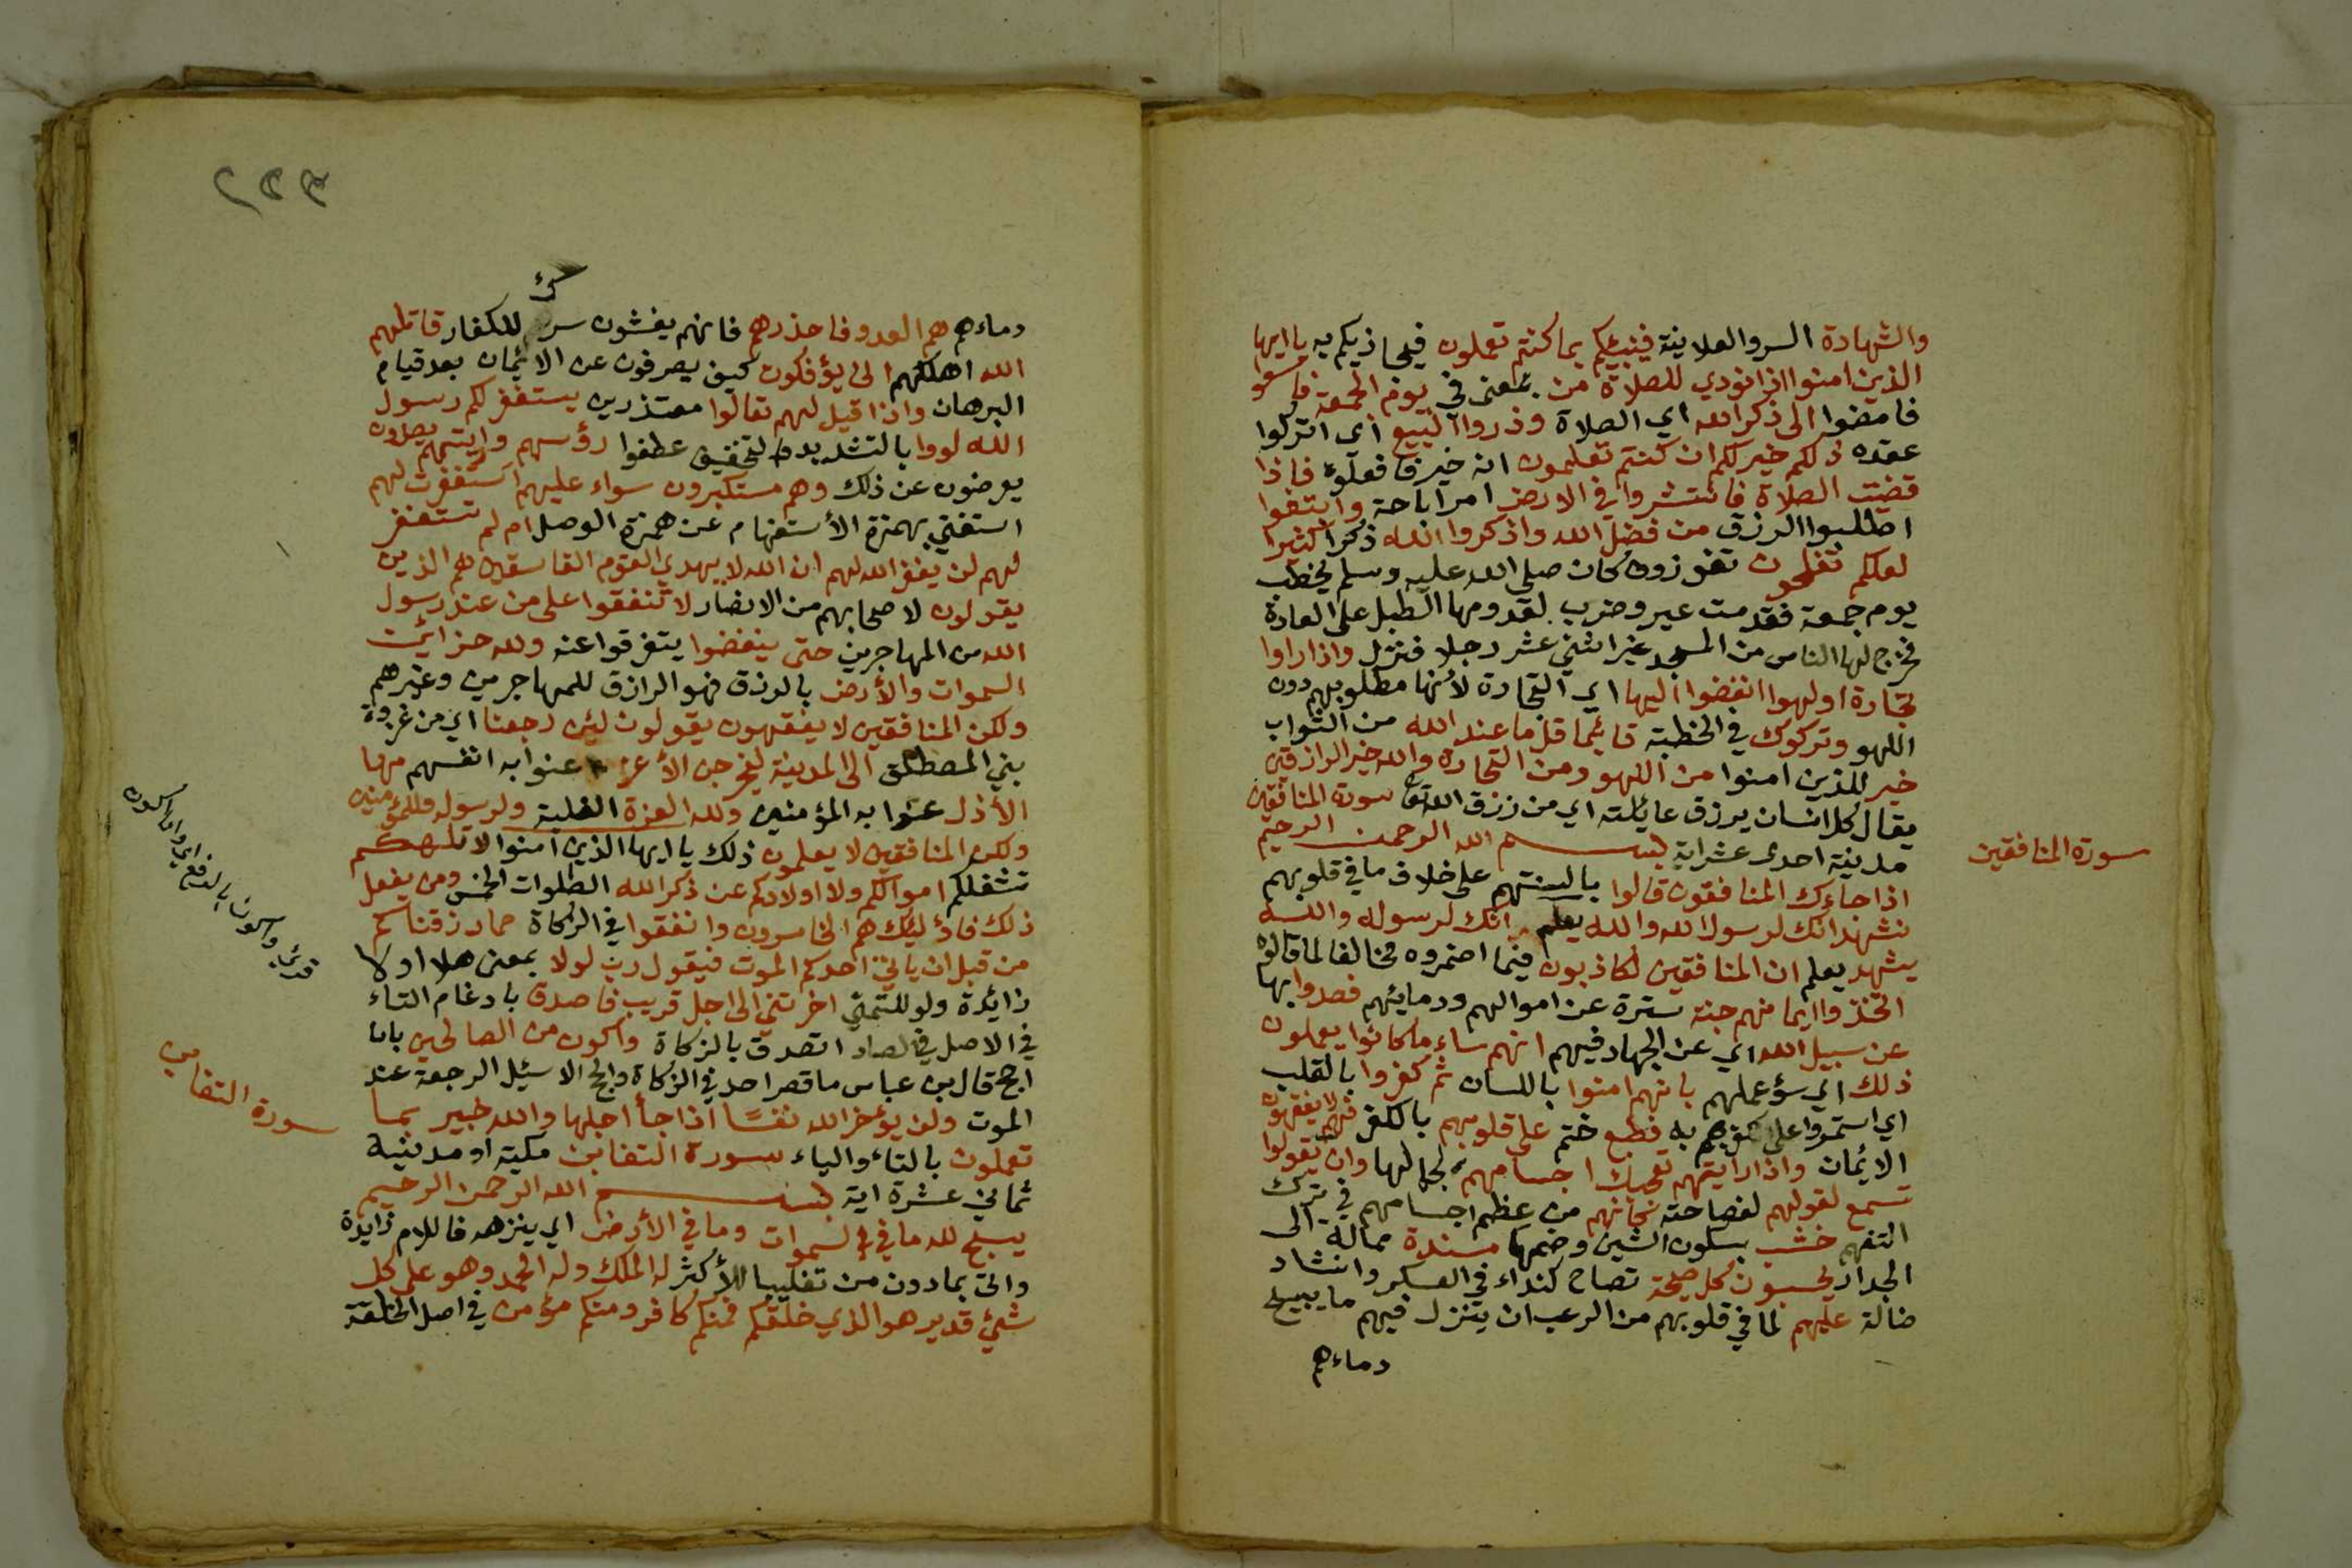 والشهادة السر والعلاينة فينبئكم بما كنتم تعملون فيجاذيكم به يا ايها
الذين امنوا اذا نودي للصلاة من بمعنى في يوم الجمعة فاسعوا
فامضوا الى ذكر الله اي الصلاة وذروا البيع اى اتركوا
عقده ذلكم خير لكم ان كنتم تعلمون انه خير فافعلوه فاذا
قضيت الصلاة فانتشروا في الارض امر اباحة وابتغوا
اطلبوا الرزق من فضل الله واذكروا الله ذكرا كثيرا
لعلكم تفلحون تفوزون كان صلى الله عليه وسلم يخطب
يوم جمعة فقدمت عير وضرب لقدومها الطبل على العادة
فخرج لها الناس من المسجد غير اثني عشر رجلا فنزل واذا راوا
تجارة او لهوا انفضوا اليها اي التجارة لأنها مطلوبهم دون
اللهو وتركوك في الخطبة قائيما قل ما عند الله من الثواب
خير للذين امنوا من اللهو ومن التجارة والله خير الرازقين
يقال كل انسان يرزق عائلته اي من رزق الله تعا سورة المنافقين
مدنية احدى عشر اية بسم الله الرحمن الرحيم
اذا جاءك المنافقون قالوا بالسنتهم على خلاف ما في قلوبهم
نشهد انك لرسول الله والله يعلم انك لرسوله والله
يشهد يعلم ان المنافقين لكاذبون فيما اضمروه مخالفا لما قالوه
اتخذوا ايمانهم جنة سترة عن اموالهم ودمائهم فصدوا بها
عن سبيل الله اي عن الجهاد فيهم انهم ساء ما كانوا يعملون
ذلك اي سؤ عملهم بانهم امنوا باللسان ثم كفروا بالقلب
اي استمروا على كفرهم به فطبع ختم على قلوبهم بالكفر فهم لا يفقهون
الايمان واذا رايتهم تعجبك اجسامهم لجمالها وان يقولوا
تسمع لقولهم لفصاحته كانهم من عظم اجسامهم في ترك
التفهم خشب بسكون الشين وضمها مسندة ممالة الى
الجدار يحسبون كل صيحة تصاح كنداء في العسكر وانشاد
ضالة عليهم لما في قلوبهم من الرعب ان ينزل فيهم ما يبيح
دماءهم
سورة المنافقين
٢٥٣
دماءهم هم العدو فاحذرهم فانهم يفشون سرك للكفار قاتلهم
الله اهلكهم انى يؤفكون كيف يصرفون عن الايمان بعد قيام
البرهان واذا قيل لهم تعالوا معتذرين يستغفر لكم رسول
الله لووا بالتشديد والتخفيف عطفوا رؤسهم ورايتهم يصدون
يعرضون عن ذلك وهم مستكبرون سواء عليهم استغفرت لهم
استغني بهمزة الأستفهام عن همزة الوصل ام لم تستغفر
لهم لن يغفر الله لهم ان الله لا يهدي القوم الفاسقين هم الذين
يقولون لاصحابهم من الانصار لا تنفقوا على من عند رسول
الله من المهاجرين حتى ينفضوا يتفرقوا عنه ولله خزائن
السموات والأرض بالرزق فهو الرازق للمهاجرين وغيرهم
ولكن المنافقين لا يفقهون يقولون لئن رجعنا اي من غزوة
بني المصطلق الى المدينة ليخرجن الأعز عنوا به انفسهم منها
الأذل عنوا به المؤمنين ولله العزة الغلبة ولرسوله وللمؤمنين
ولكن المنافقين لا يعلمون ذلك يا ايها الذين امنوا لا تلهكم
تشغلكم اموالكم ولا اولادكم عن ذكر الله الصلوات الخمس ومن يفعل
ذلك فاؤليك هم الخاسرون وانفقوا في الزكاة مما رزقناكم
من قبل ان ياتي احدكم الموت فيقول رب لولا بمعنى هلا او لا
زائدة ولو للتمني اخرتني الى اجل قريب فاصدق بادغام التاء
في الاصل في الصاد اتصدق بالزكاة واكون من الصالحين بان
احج قال بن عباس ما قصر احد في الزكاة والحج الا سئل الرجعة عند
الموت ولن يؤخر الله نفسًا اذا جأ اجلها والله خبير بما
تعملون بالتاء والياء سورة التغابن مكية او مدنية
ثماني عشرة اية بسم الله الرحمن الرحيم
يسبح لله ما في السموات وما في الأرض اي ينزهه فاللام زايدة
واتى بما دون من تغليبا للأكثر له الملك وله الحمد وهو على كل
شئ قدير هو الذي خلقكم فمنكم كافر ومنكم مؤمن في اصل الخلقة
سورة التغابن